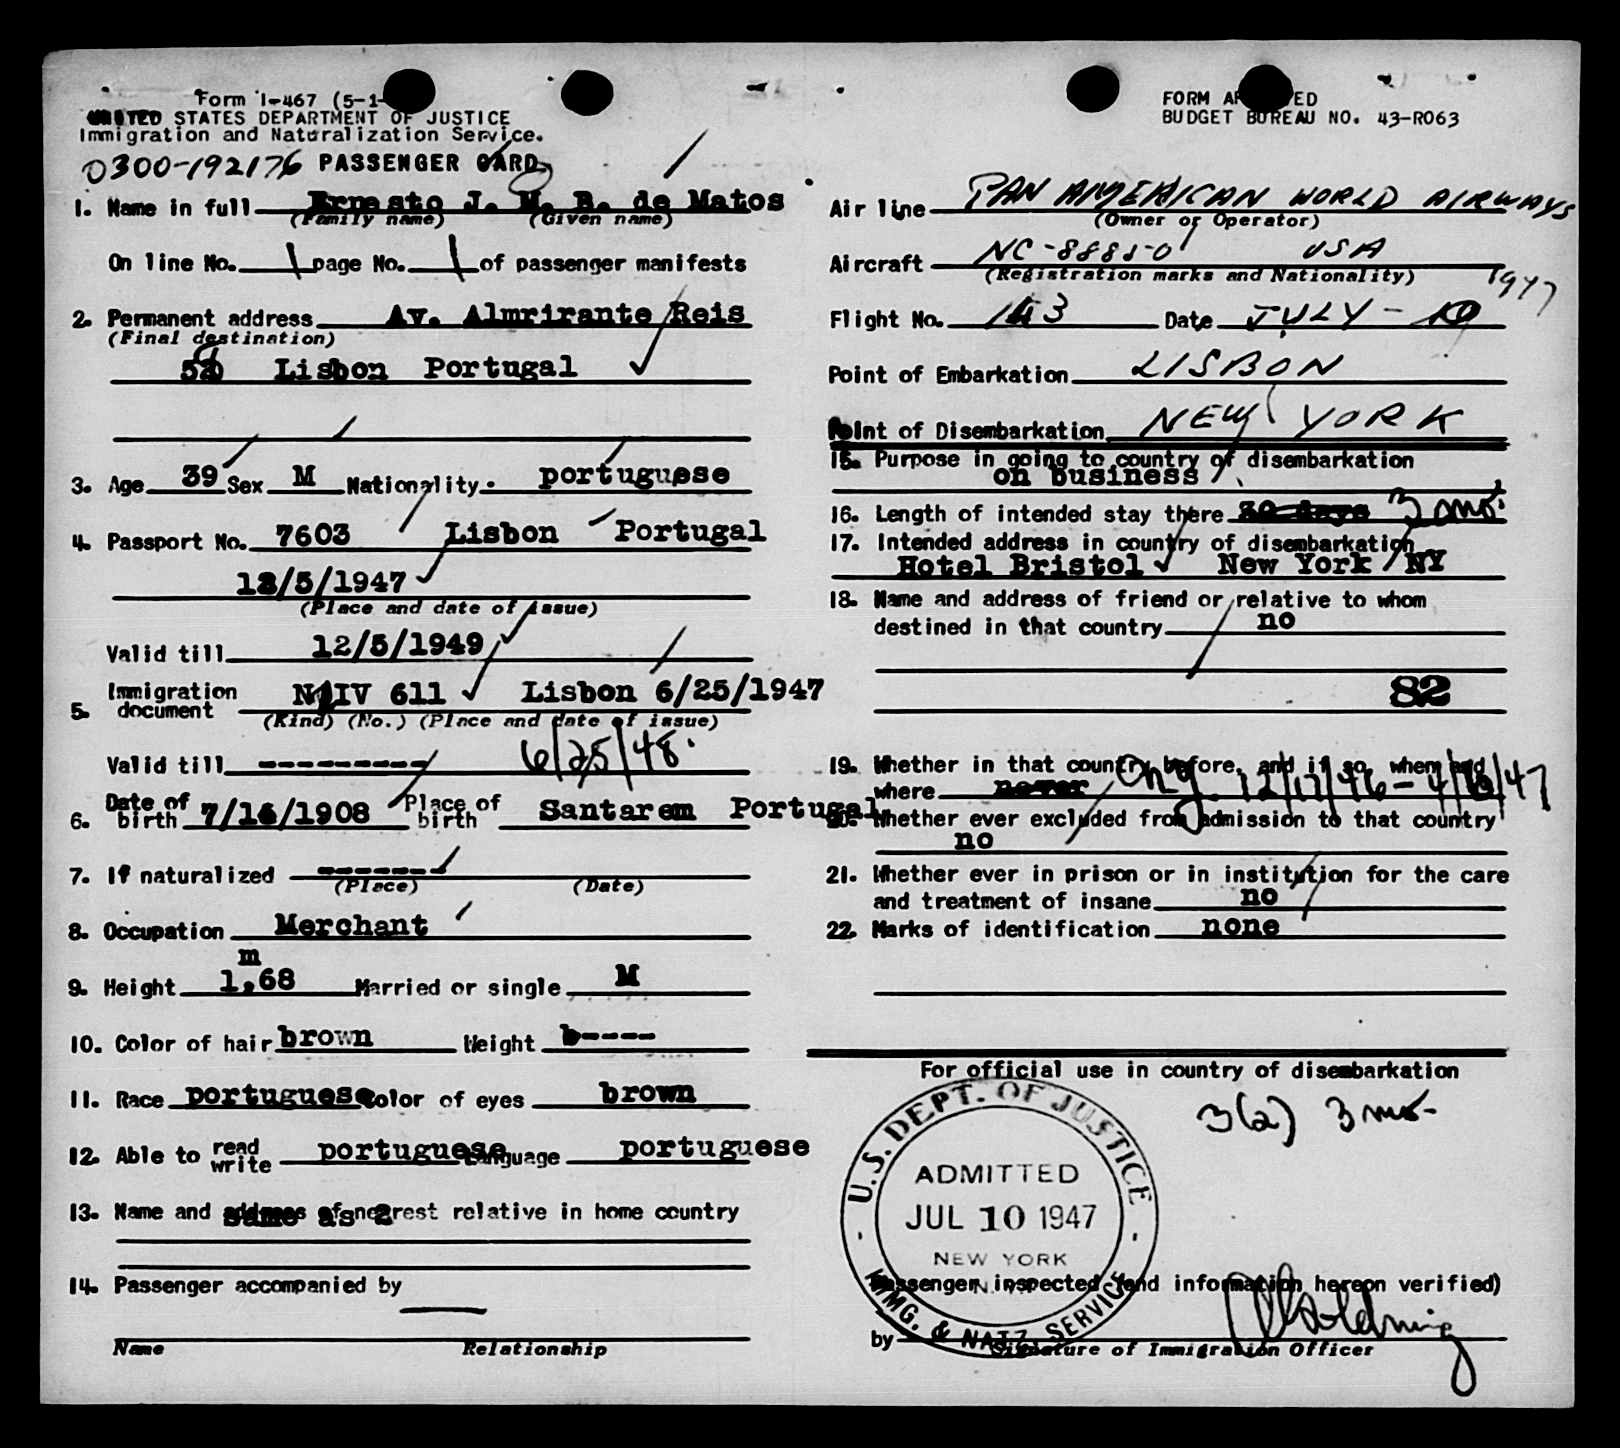 Form I-467 (5-1-
UNITED STATES DEPARTMENT OF JUSTICE
Immigration and Naturalization Service.
0300-192176 PASSENGER CARD
1. Name in full Ernesto J. M. B. de Matos
(Family name) (Given name)
On line No. 1 page No. 1 of passenger manifests
2. Permanent address Av. Almrirante Reis
(Final destination)
Lisbon Portugal
3. Age 39 Sex M Nationality. portuguese
4. Passport No. 7603 Lisbon Portugal
12/5/1947
(Place and date of issue)
Valid till 12/5/1949
5. Immigration document NIV 611 Lisbon 6/25/1947
(Kind) (No.) (Place and date of issue)
Valid till --------- 6/25/48.
6. Date of birth 7/16/1908 Place of birth Santarem Portugal
7. If naturalized -------
(Place) (Date)
8. Occupation Merchant
m
9. Height 1,68 Married or single M
10. Color of hair brown Weight -----
11. Race portuguese Color of eyes brown
12. Able to read write portuguese Language portuguese
13. Name and address of nearest relative in home country
same as 2
14. Passenger accompanied by
Name Relationship
FORM APPROVED
BUDGET BUREAU NO. 43-R063
Air line PAN AMERICAN WORLD AIRWAYS
(Owner or Operator)
Aircraft NC-88850 USA
(Registration marks and Nationality)
Flight No. 143 Date JULY - 10 1947
Point of Embarkation LISBON
Point of Disembarkation NEW YORK
15. Purpose in going to country of disembarkation
on business
16. Length of intended stay there 30 days 3 mo.
17. Intended address in country of disembarkation
Hotel Bristol New York NY
18. Name and address of friend or relative to whom
destined in that country no
82
19. Whether in that country before, and if so, when and
where never NY 12/17/46 - 4/18/47
20. Whether ever excluded from admission to that country
no
21. Whether ever in prison or in institution for the care
and treatment of insane no
22. Marks of identification none
For official use in country of disembarkation
3(2) 3 mo-
U.S. DEPT. OF JUSTICE
ADMITTED
JUL 10 1947
NEW YORK
N.Y.
IMMG. & NATZ. SERVICE
Passenger inspected (and information hereon verified)
by
Signature of Immigration Officer